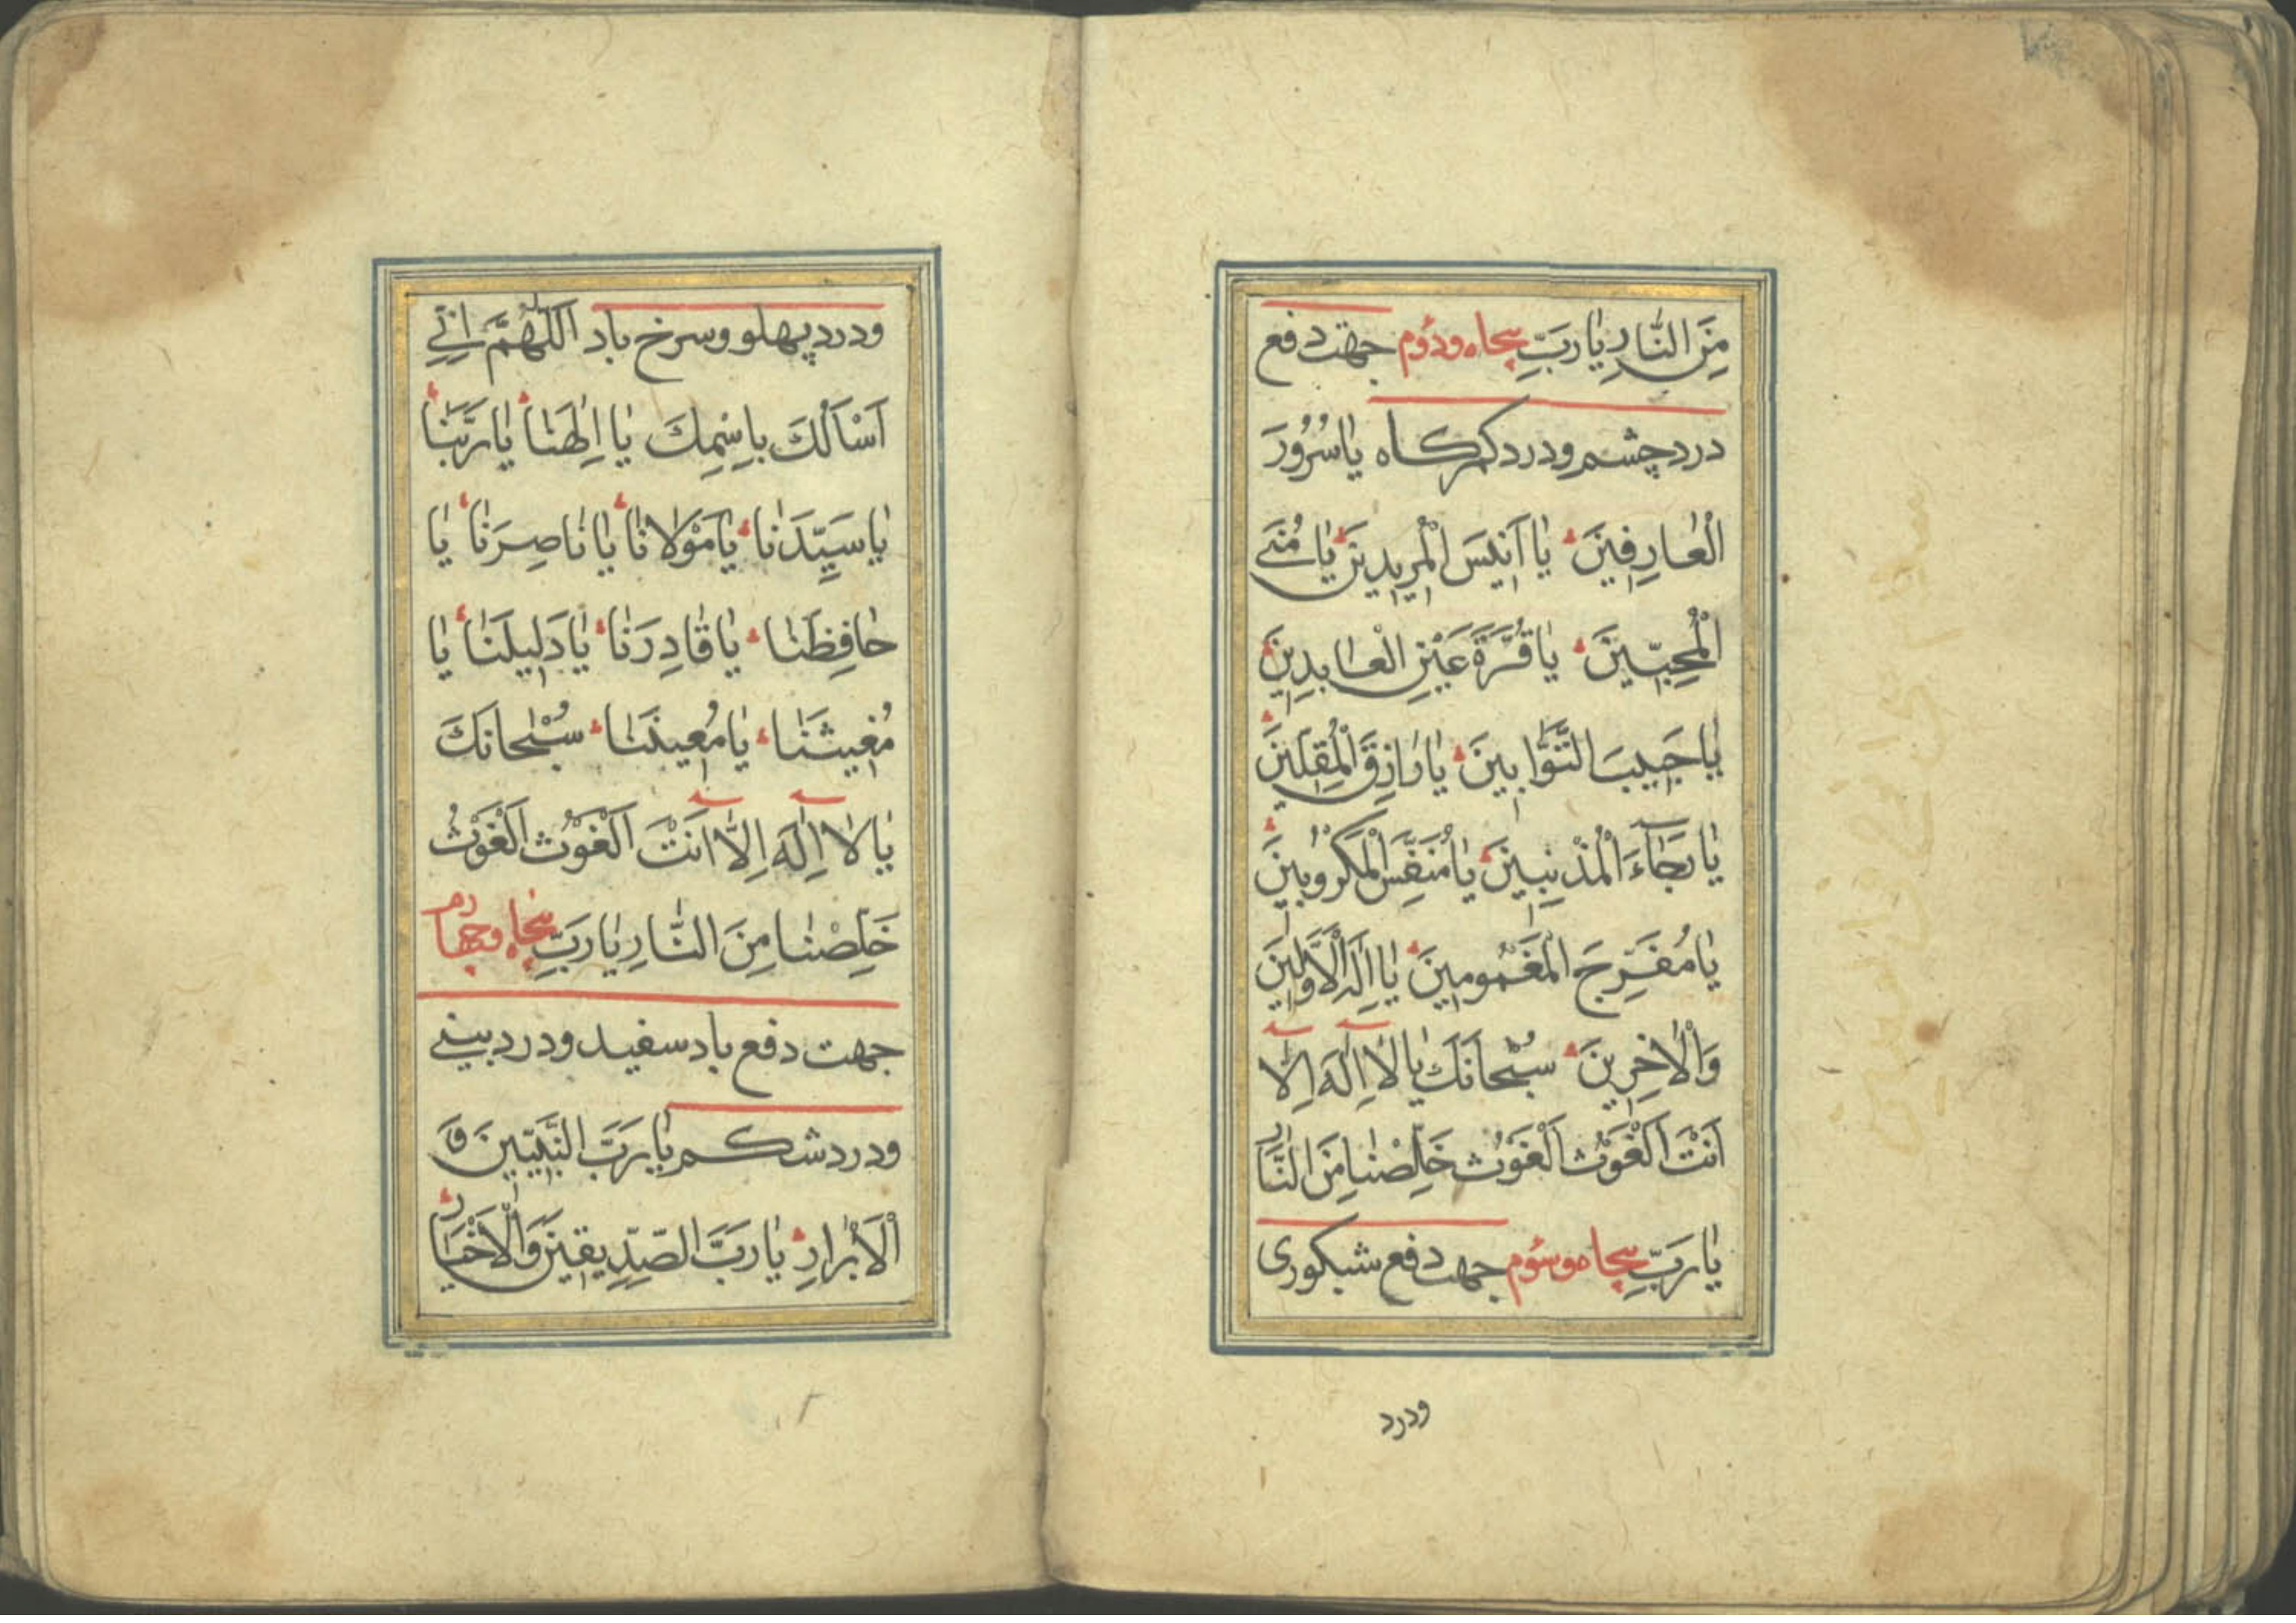 مِنَ النَّارِ يَا رَبِّ پنجاه ودوّم جهت دفع
درد چشم ودرد کمرکاه یَا سُرُورَ
الْعَارِفِينَ يَا اَنِيسَ الْمُرِيدِينَ يَا مُنَى
الْمُحِبِّينَ يَا قُرَّةَ عَيْنِ الْعَابِدِينَ
يَا حَبِيبَ التَّوَّابِينَ يَا رَازِقَ الْمُقِلِّينَ
يَا رَجَآءَ الْمُذْنِبِينَ يَا مُنَفِّسَ الْمَكْرُوبِينَ
يَا مُفَرِّجَ الْمَغْمُومِينَ يَا اِلَهَ الْاَوَّلِينَ
وَالْاٰخِرِينَ سُبْحَانَكَ يَا لَا اِلٰهَ اِلَّا
اَنْتَ اَلْغَوْثُ اَلْغَوْثُ خَلِّصْنَا مِنَ النَّارِ
يَا رَبِّ پنجاه وسوّم جهت دفع شبکوری
ودرد
ودرد پهلو وسرخ باد اَللّٰهُمَّ اِنِّي
اَسْاَلُكَ بِاسْمِكَ يَا اِلٰهَنَا يَا رَبَّنَا
يَا سَيِّدَنَا يَا مَوْلَانَا يَا نَاصِرَنَا يَا
حَافِظَنَا يَا قَادِرَنَا يَا دَلِيلَنَا يَا
مُغِيثَنَا يَا مُعِينَنَا سُبْحَانَكَ
يَا لَا اِلٰهَ اِلَّا اَنْتَ اَلْغَوْثُ اَلْغَوْثُ
خَلِّصْنَا مِنَ النَّارِ يَا رَبِّ پنجاه وچهارم
جهت دفع باد سفید ودرد بینی
ودرد شکم يَا رَبَّ النَّبِيِّينَ وَ
الْاَبْرَارِ يَا رَبَّ الصِّدِّيقِينَ وَالْاَخْيَارِ